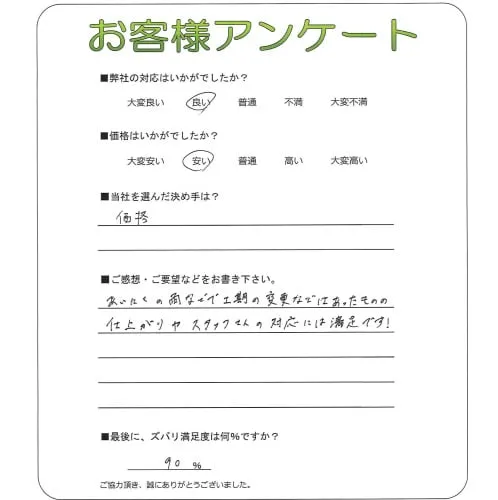 お客様アンケート
■弊社の対応はいかがでしたか？
大変良い 良い 普通 不満 大変不満
■価格はいかがでしたか？
大変安い 安い 普通 高い 大変高い
■当社を選んだ決め手は？
価格
■ご感想・ご要望などをお書き下さい。
あいにくの雨などで工期の変更などはあったものの
仕上がりやスタッフさんの対応には満足です！
■最後に、ズバリ満足度は何％ですか？
90 ％
ご協力頂き、誠にありがとうございました。